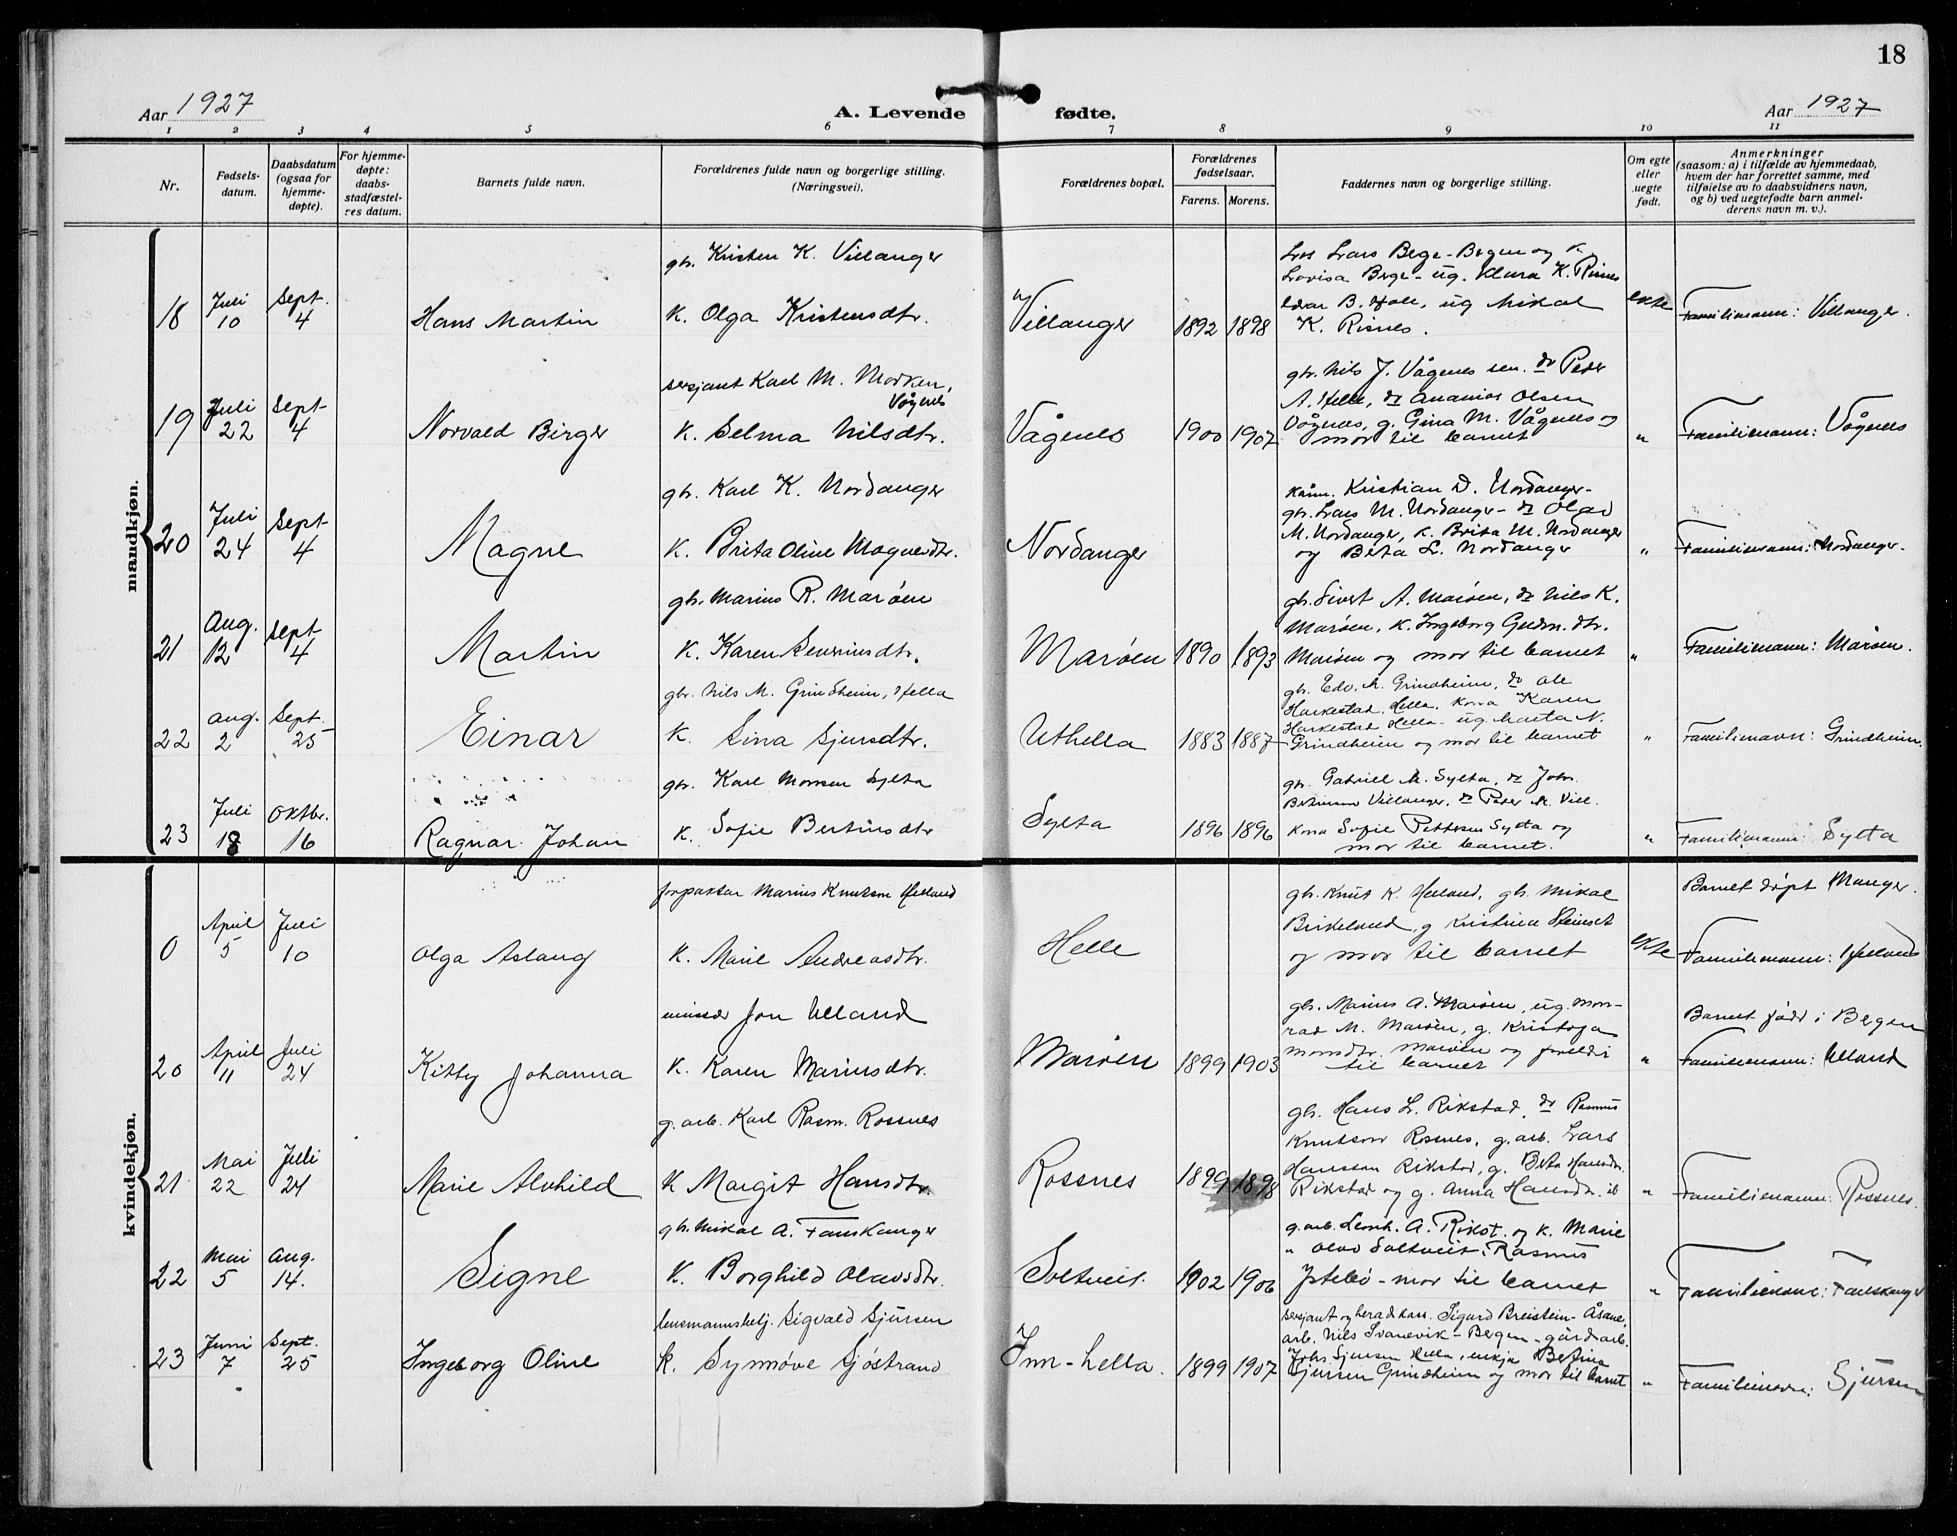 18
Aar 1927
A. Levende fødte.
Aar 1927
1 2 3 4 5 6 7 8 9 10 11
Nr.
Fødsels-
datum.
Daabsdatum
(ogsaa for
hjemme-
døpte).
For hjemme-
døpte:
daabs-
stadfæstel-
res datum.
Barnets fulde navn.
Forældrenes fulde navn og borgerlige stilling.
(Næringsvei).
Forældrenes bopæl.
Forældrenes
fødselsaar.
Farens. Morens.
Faddernes navn og borgerlige stilling.
Om egte
eller
uegte
født.
Anmerkninger
(saasom: a) i tilfælde av hjemmedaab,
hvem der har forrettet samme, med
tilføielse av to daabsvidners navn,
og b) ved uegtefødte barn anmel-
derens navn m. v.).
mandkjøn.
18
Juli
10
Sept.
4
Hans Martin
gbr. Kristen K. Villanger
K. Olga Kristensdtr.
Villanger
1892 1898
Lars Berge - Bergen og K
Lovisa Berge - ug. Klara K. Risnes
B. Helle, ug Mikal
K. Risnes.
ekte
Familienavn: Villanger.
19
Juli
22
Sept
4
Norvald Birger
sersjant Karl M. Morken,
Vågenes
K. Selma Nilsdtr.
Vågenes
1900 1907
gbr. Nils J. Vågenes sen. do Peder
A. Helle, do Ananias Olsen
Vågenes, g. Gina M. Vågenes og
mor til barnet
"
Familienavn: Vågenes
20
Juli
24
Sept
4
Magne
gbr. Karl K. Nordanger
K. Brita Oline Magnesdtr.
Nordanger
kårm. Kristian D. Nordanger -
gbr. Lars M. Nordanger - do Olav
M. Nordanger, K. Brita M. Nordanger
og Berta L. Nordanger
"
Familienavn: Nordanger.
21
Aug.
12
Sept
4
Martin
gbr. Marius R. Marøen
K. Karen Severinsdtr.
Marøen
1890 1893
gbr. Sivert A. Marøen, do Nils K.
Marøen, K. Ingeborg Gudm. dtr.
Marøen og mor til barnet
"
Familienavn: Marøen.
22
Aug.
2
Sept.
25
Einar
gbr. Nils M. Grindheim, Hella
K. Sina Sjursdtr.
Uthella
1883 1887
gbr. Edv. M. Grindheim, do Ole
Harkestad, Hella, kona Karen
Harkestad Hella - ug. Marta N.
Grindheim og mor til barnet
"
Familienavn: Grindheim.
23
Juli
18
Oktbr.
16
Ragnar Johan
gbr. Karl Monsen Sylta
K. Sofie Bertinsdtr
Sylta
1896 1896
gbr. Gabriel M. Sylta, do Johs.
Bertinsen Villanger. do Peder M. Vill.
kona Sofie Pettersen Sylta og
mor til barnet.
"
Familienavn: Sylta
kvindekjøn.
0
April
5
Juli
10
Olga Aslaug
forpaktar Marius Knutsen Helland
K. Marie Andreasdtr.
Helle
gbr. Knut K. Helland, gbr. Mikal
Birkeland, g Kristina
og mor til barnet
ekte
Barnet døpt Manger.
Familienavn: Helland
20
April
11
Juli
24
Kitty Johanna
Jon Ulland
K. Karen Mariusdtr.
Marøen
1899 1903
gbr. Marius A. Marøen, ug. Mon-
rad M. Marøen, g. Kristofa
Monsdtr. Marøen og foreldri
til barnet
"
Barnet født i Bergen
Familienavn: Ulland
21
Mai
22
Juli
24
Marie Alvhild
g.arb. Karl Rasm. Rossnes
K Margit Hansdtr.
Rossnes
1899 1898
gbr. Hans L. Rikstad, do Rasmus
Knutson Rossnes, g.arb. Lars
Hansson Rikstad, g. Berta Hansdtr.
Rikstad og g. Anna Hansdtr. ib
"
Familienavn: Rossnes.
22
Mai
5
Aug.
14.
Signe
gbr. Mikal A. Fauskanger
K. Borghild Olavsdtr.
Soltveit.
1902 1906
g.arb. Leonh. A. Rikst. og K. Marie
" Olav Soltveit, Rasmus
Istebø - mor til barnet
"
Familienavn: Fauskanger
23
Juni
7
Sept.
25
Ingeborg Oline
lensmannshelj. Sigvald Sjursen
K. Synnøve Sjöstrand
Inn-hella.
1899 1907
sersjant og heradskass. Sigurd Breistein - Åsane,
arb. Nils Svanevik - Bergen, gårdarb.
Johs. Sjursen Hella, enkja Betina
Sjursen Grindheim og mor til barnet
"
Familienavn: Sjursen